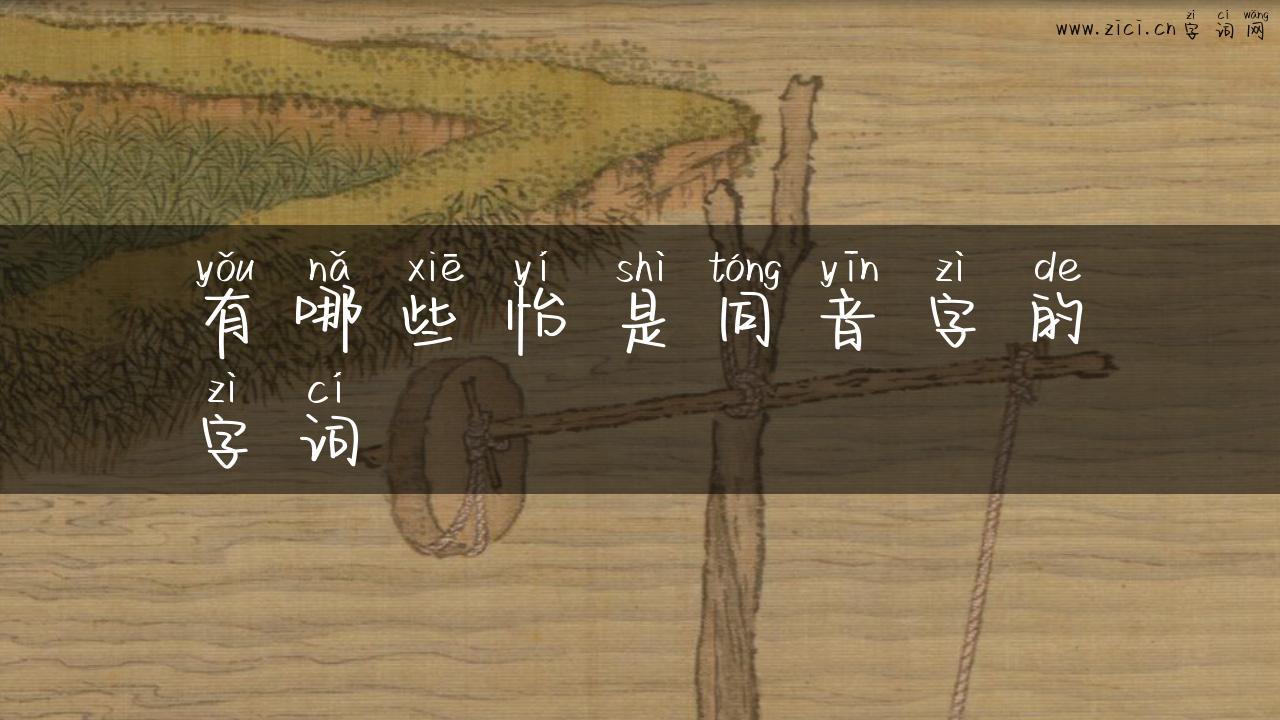 zì cí wǎng
www.zici.cn字词网
yǒu nǎ xiē yí shì tóng yīn zì de
有哪些怡是同音字的
zì cí
字词